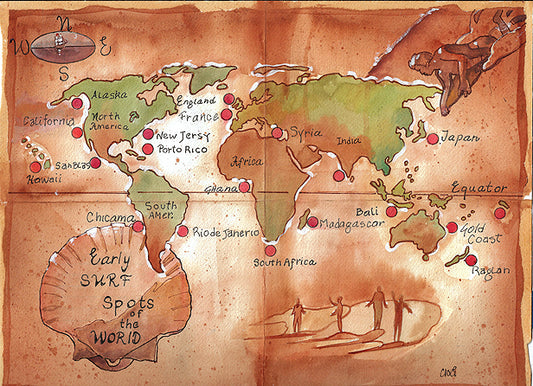 N
W E
S
Alaska
North
America
California
Hawaii
San Blas
New Jersy
Porto Rico
England
France
Syria
India
Japan
Africa
Ghana
Equator
South
Amer.
Chicama
Rio de Janerio
South Africa
Madagascar
Bali
Gold
Coast
Raglan
Early
SURF
Spots
of
the
WORLD